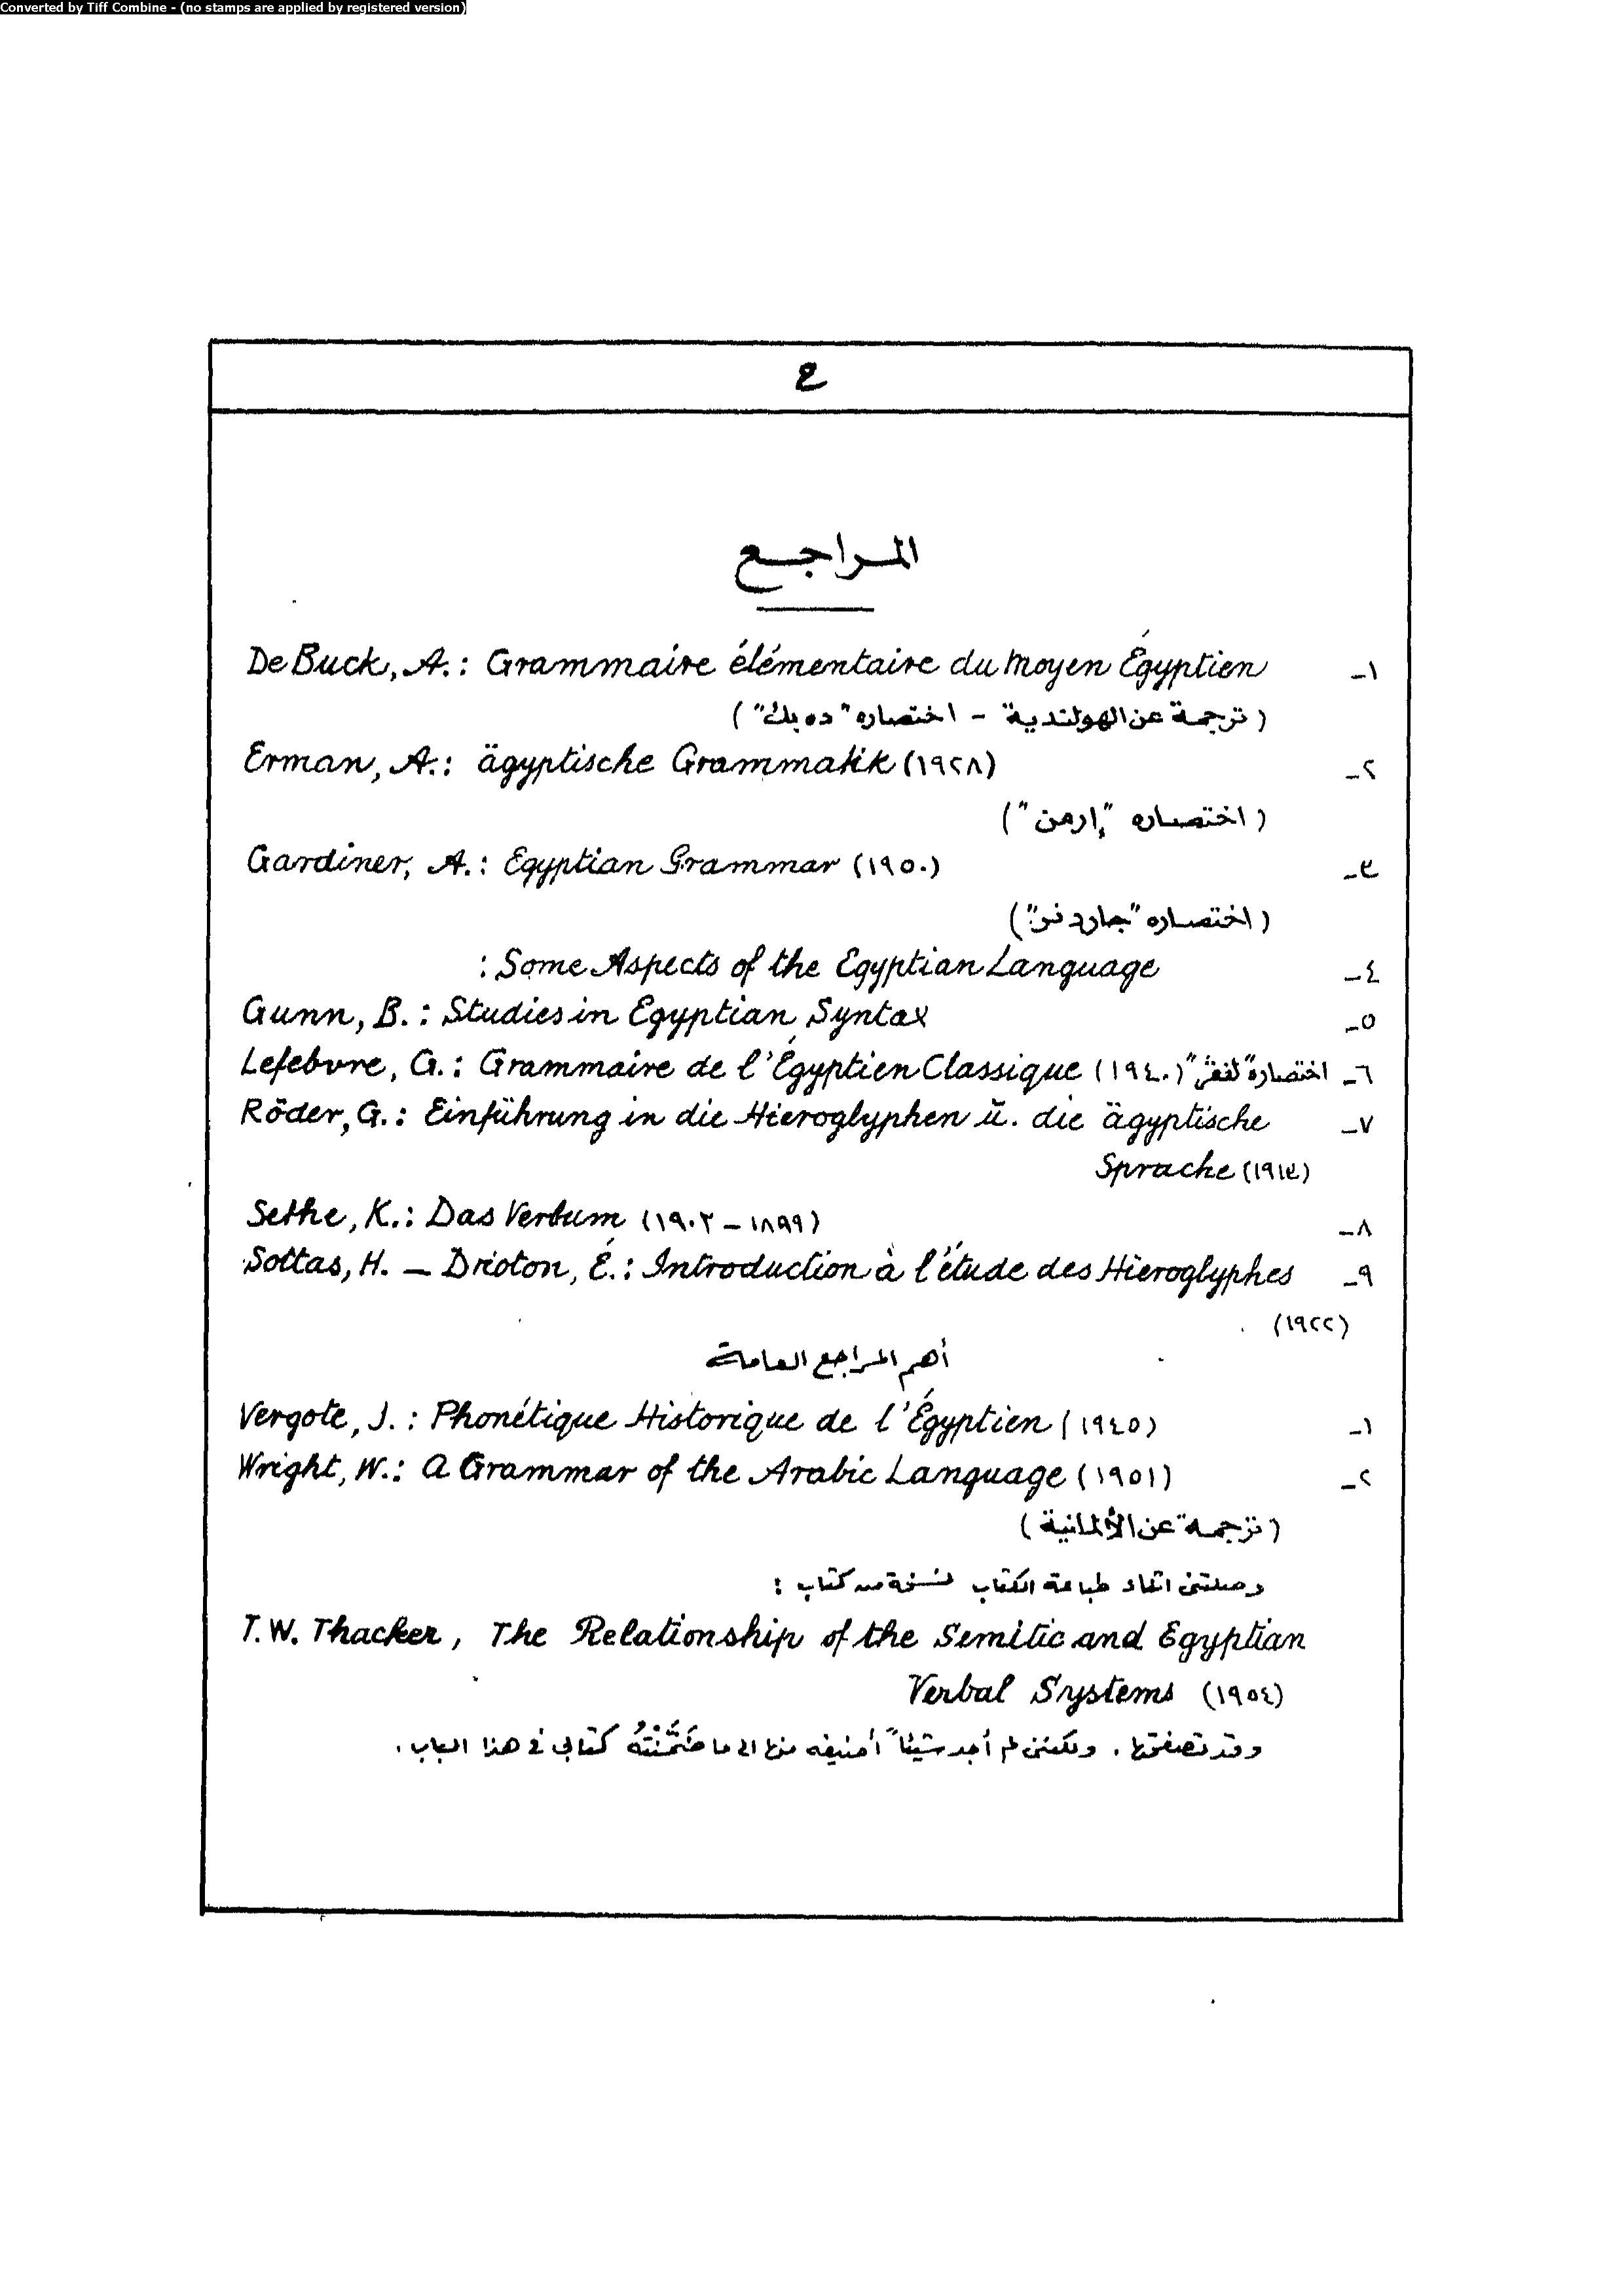 Converted by Tiff Combine - (no stamps are applied by registered version)
ع
المراجع
١- De Buck, A.: Grammaire élémentaire du Moyen Égyptien
(ترجمة عن الهولندية - اختصاره "ده بك")
٢- Erman, A.: ägyptische Grammatik (١٩٢٨)
(اختصاره "إرمن")
٣- Gardiner, A.: Egyptian Grammar (١٩٥٠)
(اختصاره "جاردنر")
٤- : Some Aspects of the Egyptian Language
٥- Gunn, B.: Studies in Egyptian Syntax
٦- Lefebvre, G.: Grammaire de l'Égyptien Classique (١٩٤٠) اختصاره
٧- Röder, G.: Einführung in die Hieroglyphen ü. die ägyptische
Sprache (١٩١٣)
٨- Sethe, K.: Das Verbum (١٨٩٩ - ١٩٠٢)
٩- Sottas, H. - Drioton, É.: Introduction à l'étude des Hieroglyphes
(١٩٢٢)
أهم المراجع العامة
١- Vergote, J.: Phonétique Historique de l'Égyptien (١٩٤٥)
٢- Wright, W.: A Grammar of the Arabic Language (١٩٥١)
(ترجمة عن الألمانية)
وصلتنى اثناء طباعة الكتاب نسخة من كتاب :
T.W. Thacker, The Relationship of the Semitic and Egyptian
Verbal Systems (١٩٥٤)
وقد تصفحتها . ولكننى لم أجد شيئاً أضيفه منها الى ما ضَمَّنْتُهُ كتابى فى هذا الباب .